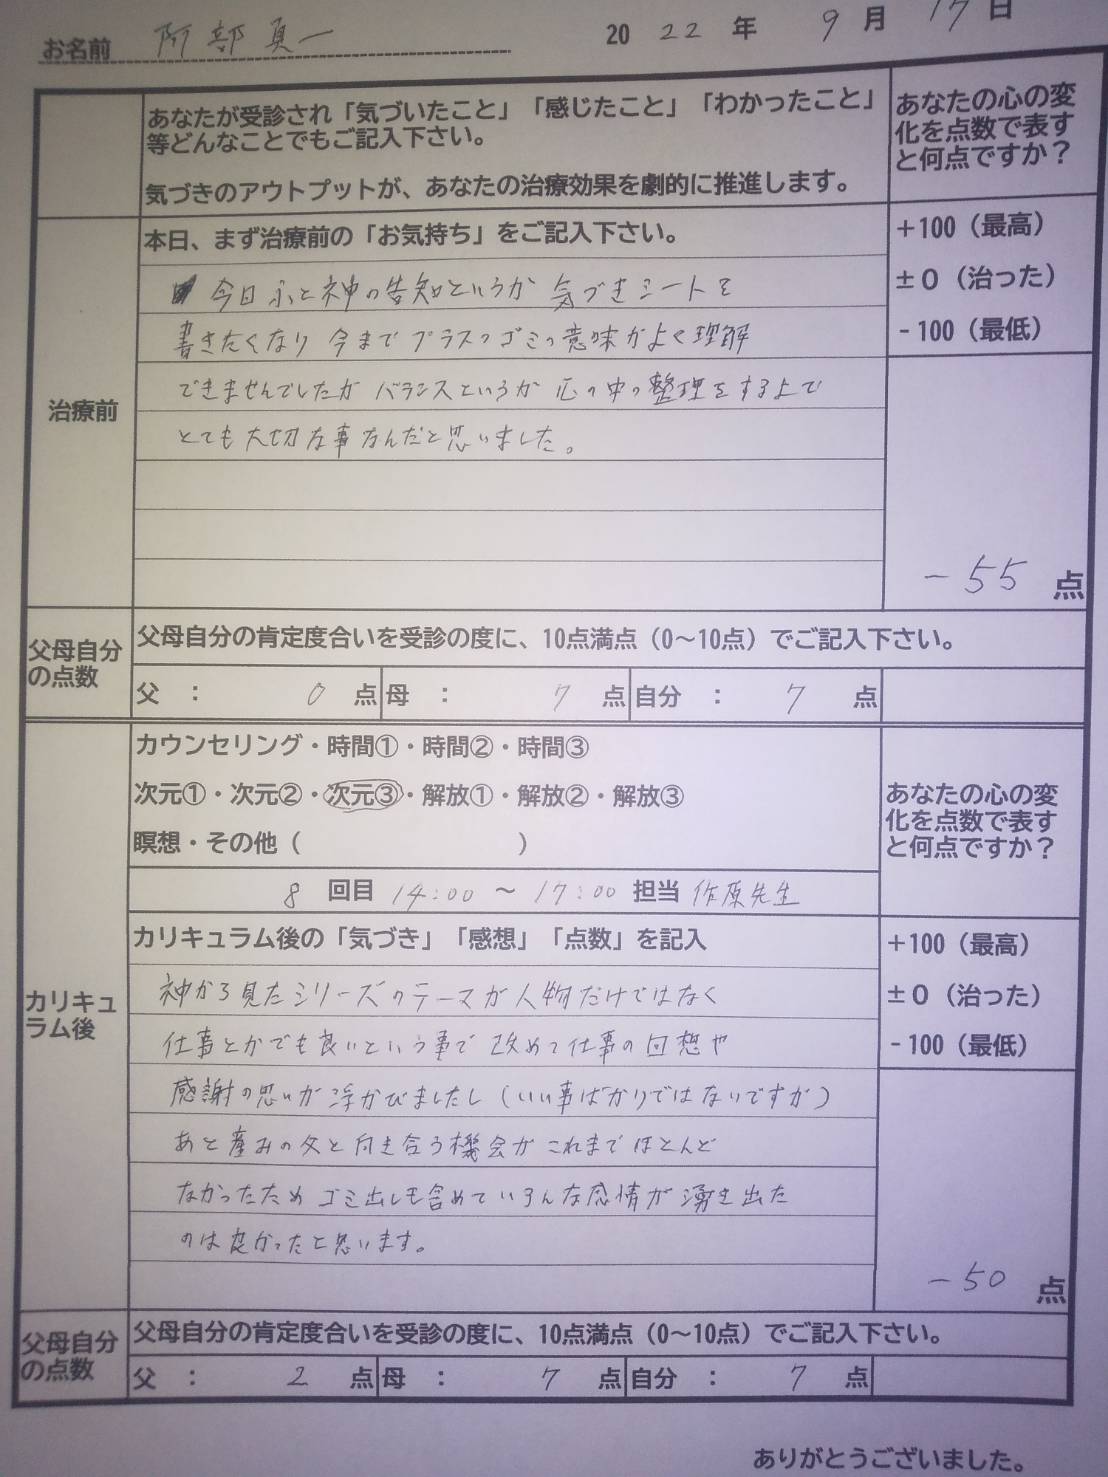 お名前 阿部真一 2022年 9月 17日
あなたが受診され「気づいたこと」「感じたこと」「わかったこと」
等どんなことでもご記入下さい。
気づきのアウトプットが、あなたの治療効果を劇的に推進します。
あなたの心の変
化を点数で表す
と何点ですか？
治療前
本日、まず治療前の「お気持ち」をご記入下さい。
今日ふと神の告知というか 気づきシートを
書きたくなり 今まで プラスのゴミの意味がよく理解
できませんでしたが バランスというか 心の中の整理をする上で
とても大切な事なんだと思いました。
+100（最高）
±0（治った）
-100（最低）
-55 点
父母自分
の点数
父母自分の肯定度合いを受診の度に、10点満点（0～10点）でご記入下さい。
父 ： 0 点 母 ： 7 点 自分 ： 7 点
カリキュ
ラム後
カウンセリング・時間①・時間②・時間③
次元①・次元②・次元③・解放①・解放②・解放③
瞑想・その他（ ）
8 回目 14:00 ～ 17:00 担当 作原先生
あなたの心の変
化を点数で表す
と何点ですか？
カリキュラム後の「気づき」「感想」「点数」を記入
神から見たシリーズのテーマが人物だけではなく
仕事とかでも良いという事で 改めて仕事の回想や
感謝の思いが浮かびましたし（いい事ばかりではないですが）
あと産みの父と向き合う機会がこれまでほとんど
なかったため ゴミ出しも含めていろんな感情が湧き出た
のは良かったと思います。
+100（最高）
±0（治った）
-100（最低）
-50 点
父母自分
の点数
父母自分の肯定度合いを受診の度に、10点満点（0～10点）でご記入下さい。
父 ： 2 点 母 ： 7 点 自分 ： 7 点
ありがとうございました。